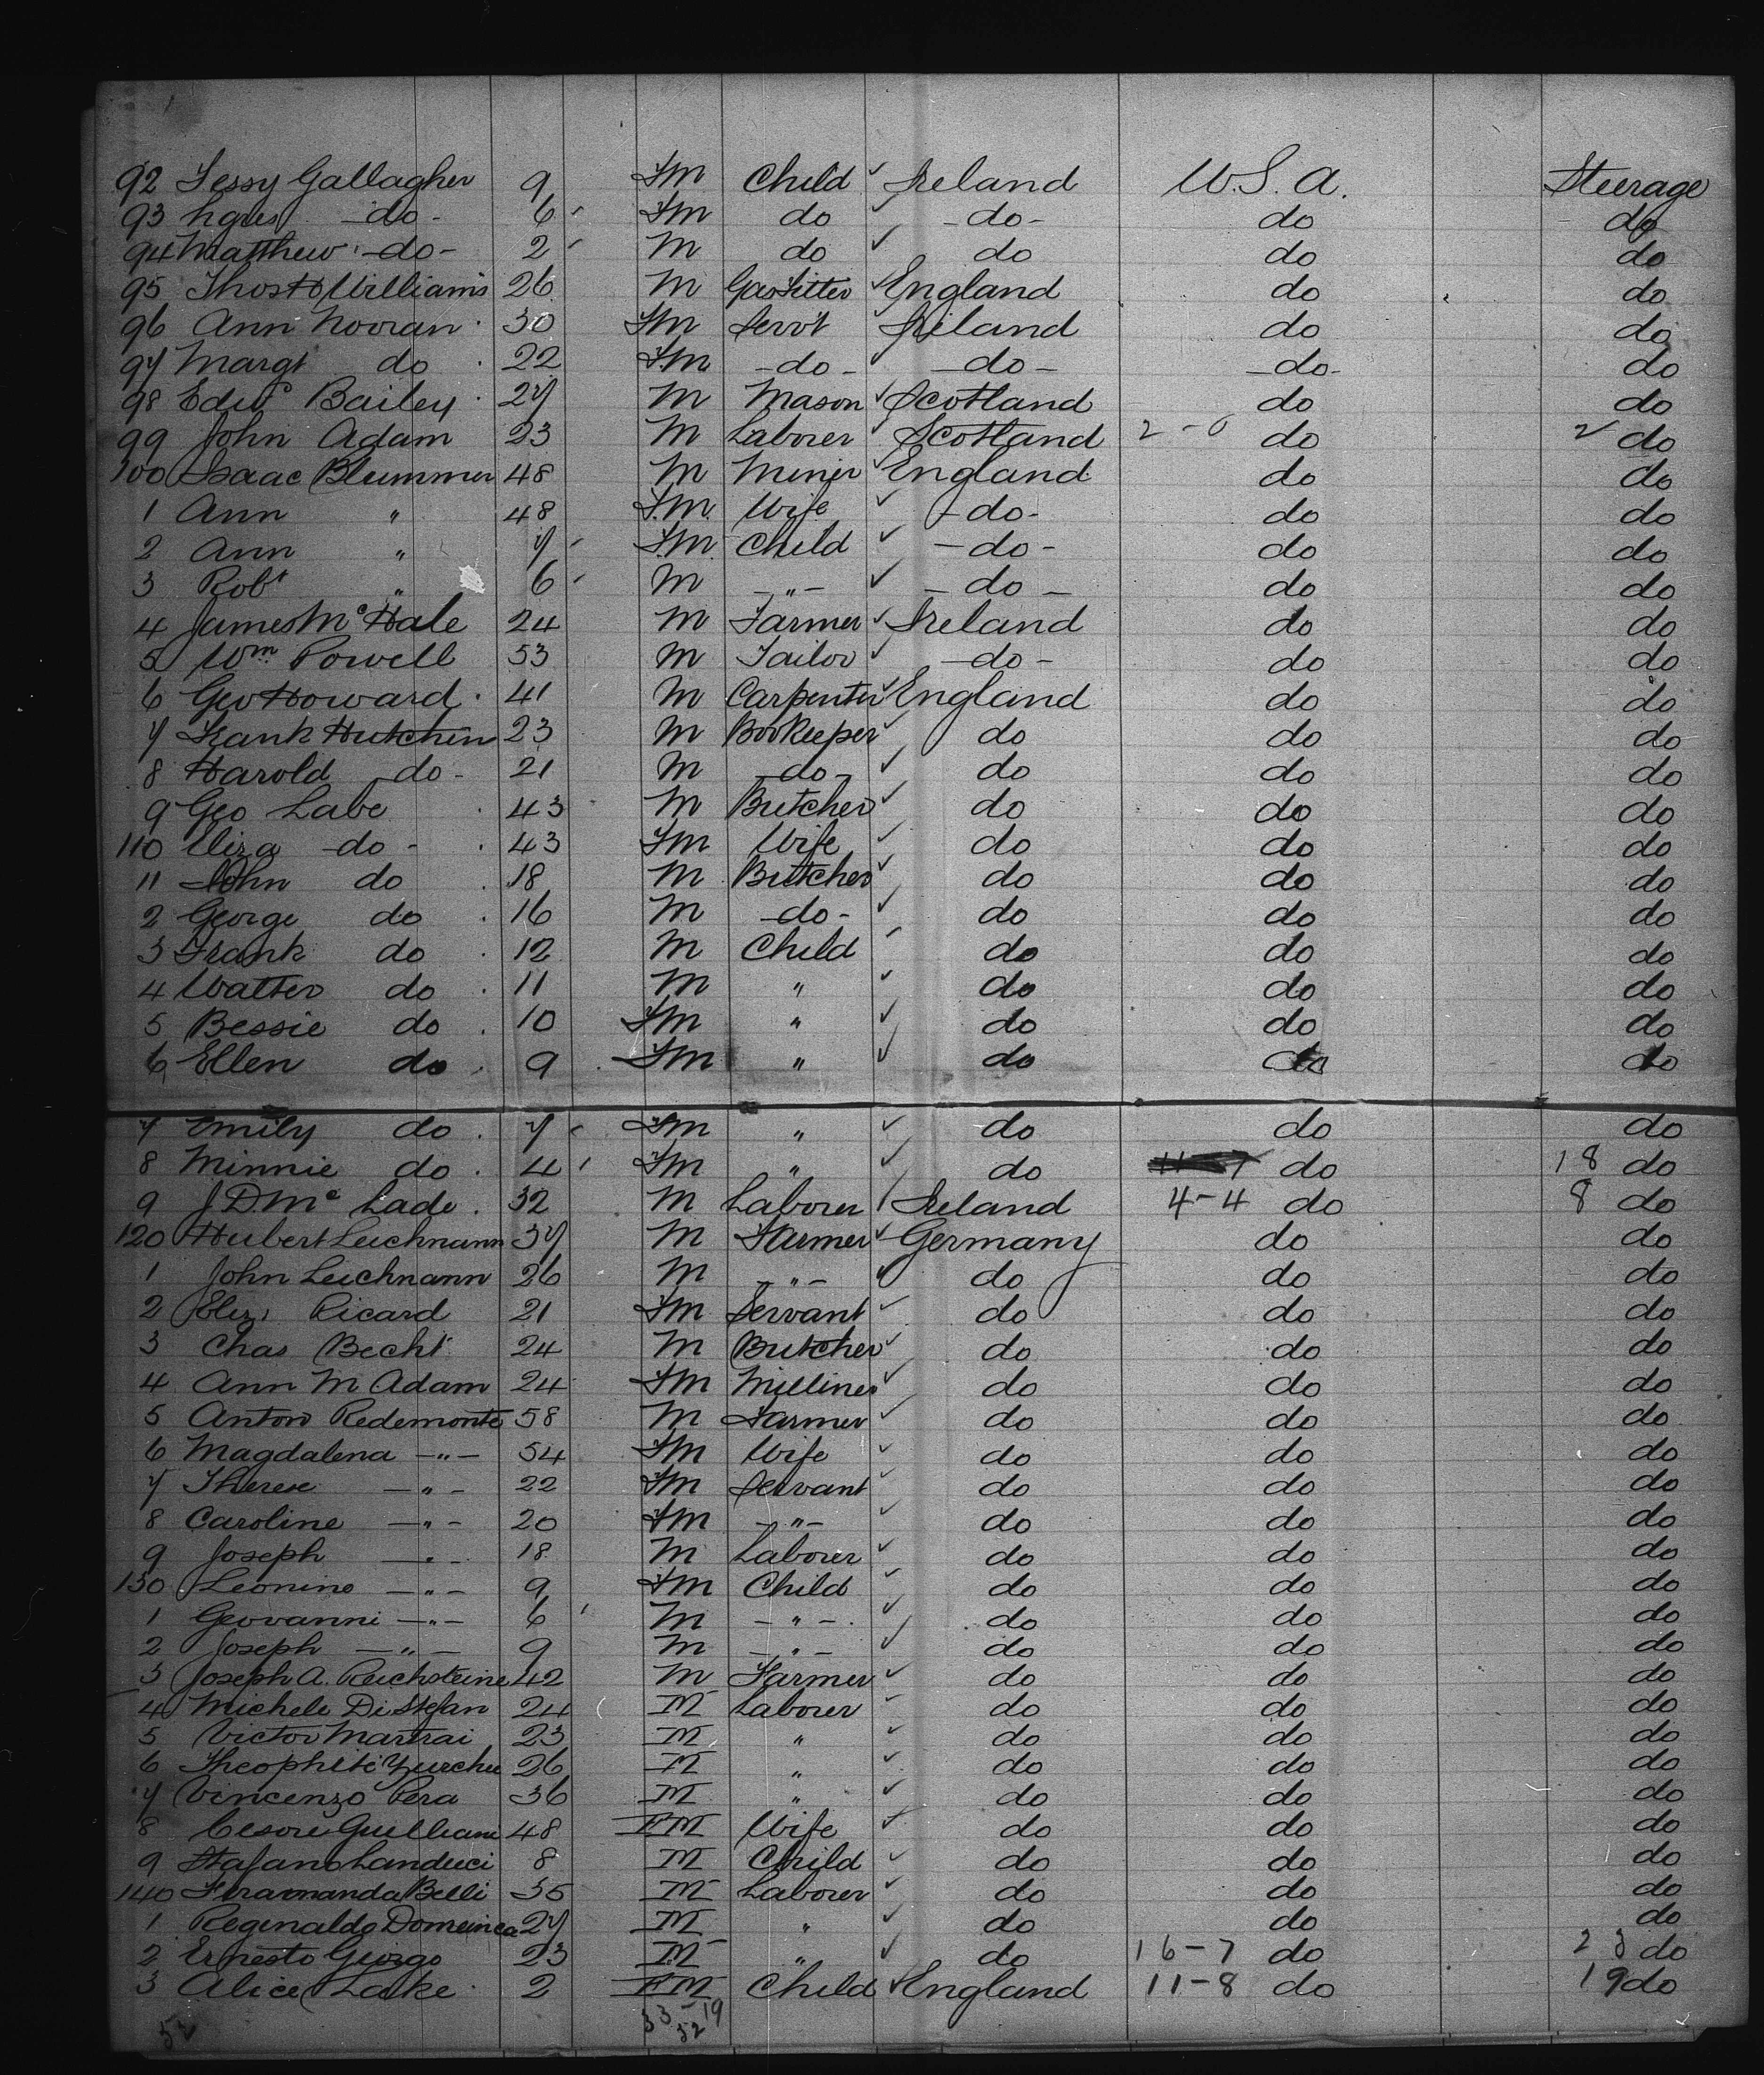 92 Tessy Gallagher 9 Fm Child ✓ Ireland U.S.A. Steerage
93 Agnes -do- 6 Fm do ✓ -do- do do
94 Matthew -do- 2 M do ✓ do do do
95 Thos H Williams 26 M Gasfitter ✓ England do do
96 Ann Nooran 30 Fm Servt Ireland do do
97 Margt do 22 Fm -do- ✓ -do- -do- do
98 Edwd Bailey 27 M Mason ✓ Scotland do do
99 John Adam 23 M Laborer ✓ Scotland 2-0 do 2 do
100 Isaac Blummer 48 M Miner ✓ England do do
1 Ann " 48 F.M. Wife ✓ -do- do do
2 Ann " 7 F.M. Child ✓ -do- do do
3 Robt " 6 M -"- ✓ -do- do do
4 James McHale 24 M Farmer ✓ Ireland do do
5 Wm Powell 53 M Tailor ✓ -do- do do
6 Geo Howard 41 M Carpenter ✓ England do do
7 Frank Hutchin 23 M Bookeeper ✓ do do do
8 Harold -do- 21 M -do- ✓ do do do
9 Geo Labe 43 M Butcher ✓ do do do
110 Eliza -do- 43 Fm Wife ✓ do do do
11 John do 18 M Butcher ✓ do do do
2 George do 16 M -do- ✓ do do do
3 Frank do 12 M Child ✓ do do do
4 Walter do 11 M " ✓ do do do
5 Bessie do 10 Fm " ✓ do do do
6 Ellen do 9 Fm " ✓ do do do
7 Emily do 7 Fm " ✓ do do do
8 Minnie do 4 Fm " ✓ do do 18 do
9 J D Mc Lade 32 M Laborer Ireland 4-4 do 8 do
120 Hubert Leichnann 37 M Farmer ✓ Germany do do
1 John Leichnann 26 M -"- do do do
2 Eliz Ricard 21 Fm Servant ✓ do do do
3 Chas Becht 24 M Butcher ✓ do do do
4 Ann M Adam 24 Fm Milliner ✓ do do do
5 Anton Redemonte 58 M Farmer ✓ do do do
6 Magdalena -"- 54 Fm Wife ✓ do do do
7 Therese -"- 22 Fm Servant ✓ do do do
8 Caroline -"- 20 Fm -"- ✓ do do do
9 Joseph -"- 18 M Laborer ✓ do do do
130 Leonino -"- 9 Fm Child ✓ do do do
1 Geovanni -"- 6 M -"- ✓ do do do
2 Joseph -"- 9 M -"- ✓ do do do
3 Joseph A. Reichsteine 42 M Farmer ✓ do do do
4 Michele Di Stefan 24 M Laborer ✓ do do do
5 Victor Martrai 23 M " ✓ do do do
6 Theophile Zurcher 26 M " ✓ do do do
7 Vincenzo Pera 36 M " ✓ do do do
8 Cesore Guilliani 48 FM Wife ✓ do do do
9 Stafano Landuci 8 M Child ✓ do do do
140 Feramanda Belli 35 M Laborer ✓ do do do
1 Reginaldo Domeinica 27 M " ✓ do do do
2 Ernesto Giorgo 23 M " ✓ do 16-7 do 23 do
3 Alice Lake 2 FM Child ✓ England 11-8 do 19 do
52 33-19
52